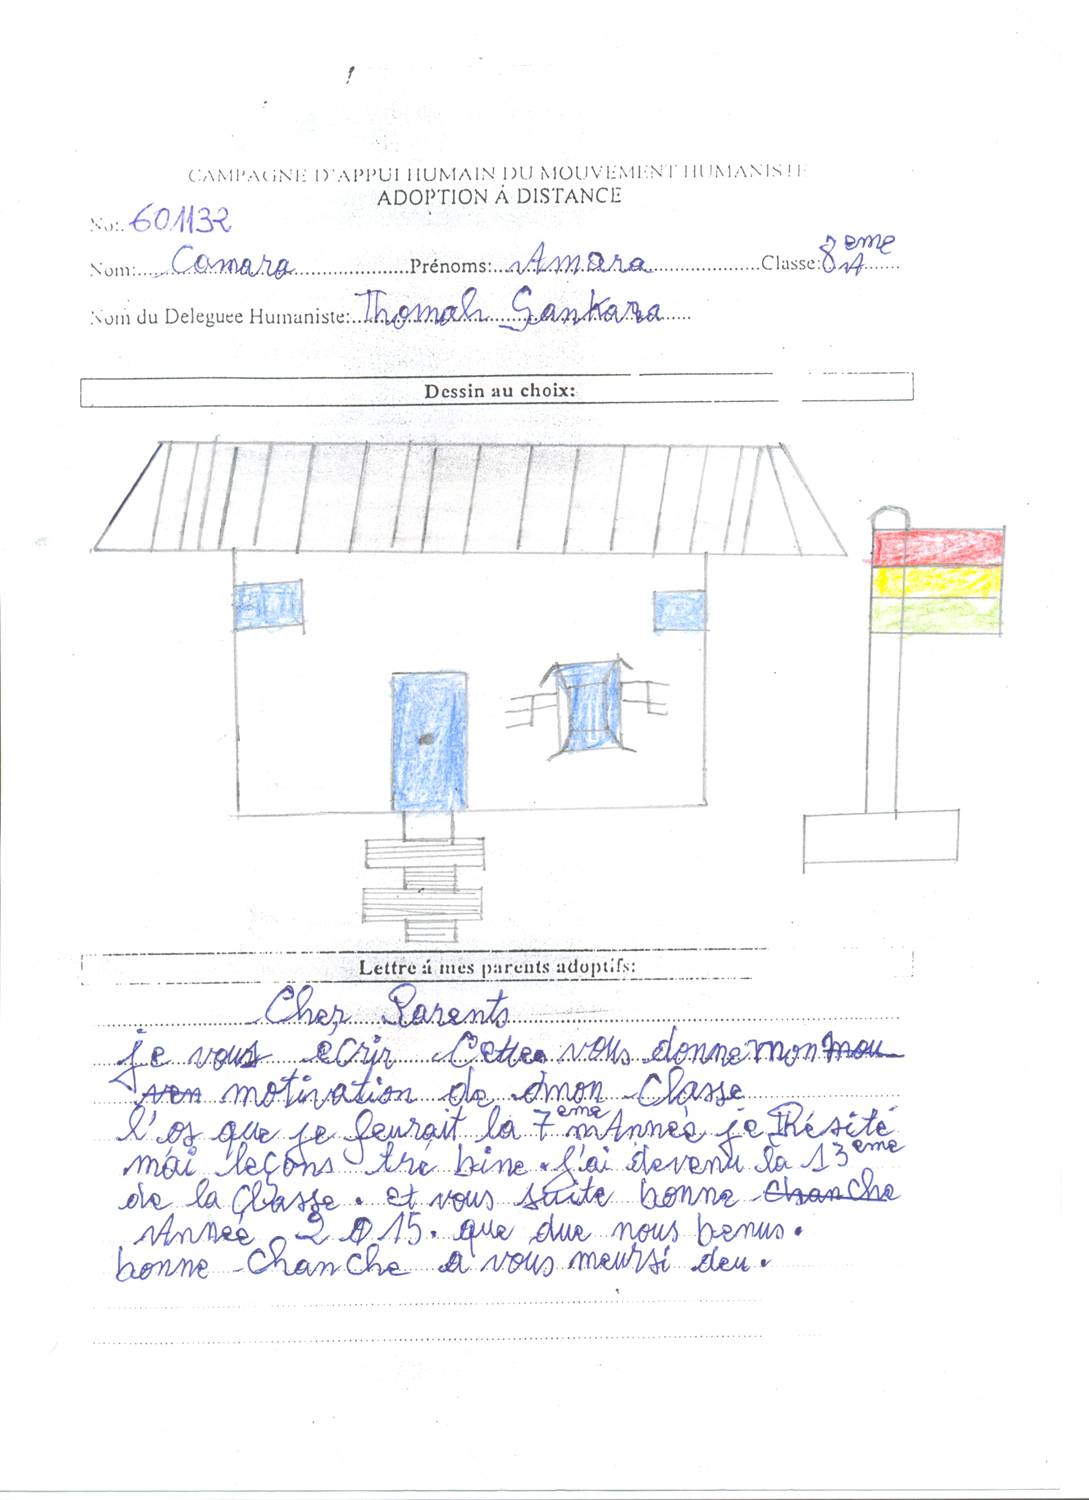 CAMPAGNE D'APPUI HUMAIN DU MOUVEMENT HUMANISTE
ADOPTION Á DISTANCE
No:. 601132
Nom: Camara Prénoms: Amara Classe: 8eme A
Nom du Deleguee Humaniste: Thomah Sankara
Dessin au choix:
Lettre á mes parents adoptifs:
Cher Parents
je vous ecrir Cette vous donne mon mou
ven motivation de dmon Classe
l'os que je feurait la 7eme Anneé je Résité
mai leçons tré bine. J'ai devenu la 13eme
de la Classe. et vous suite bonne chanche
Anneé 2015. que due nous benus.
bonne chanche a vous meursi deu.